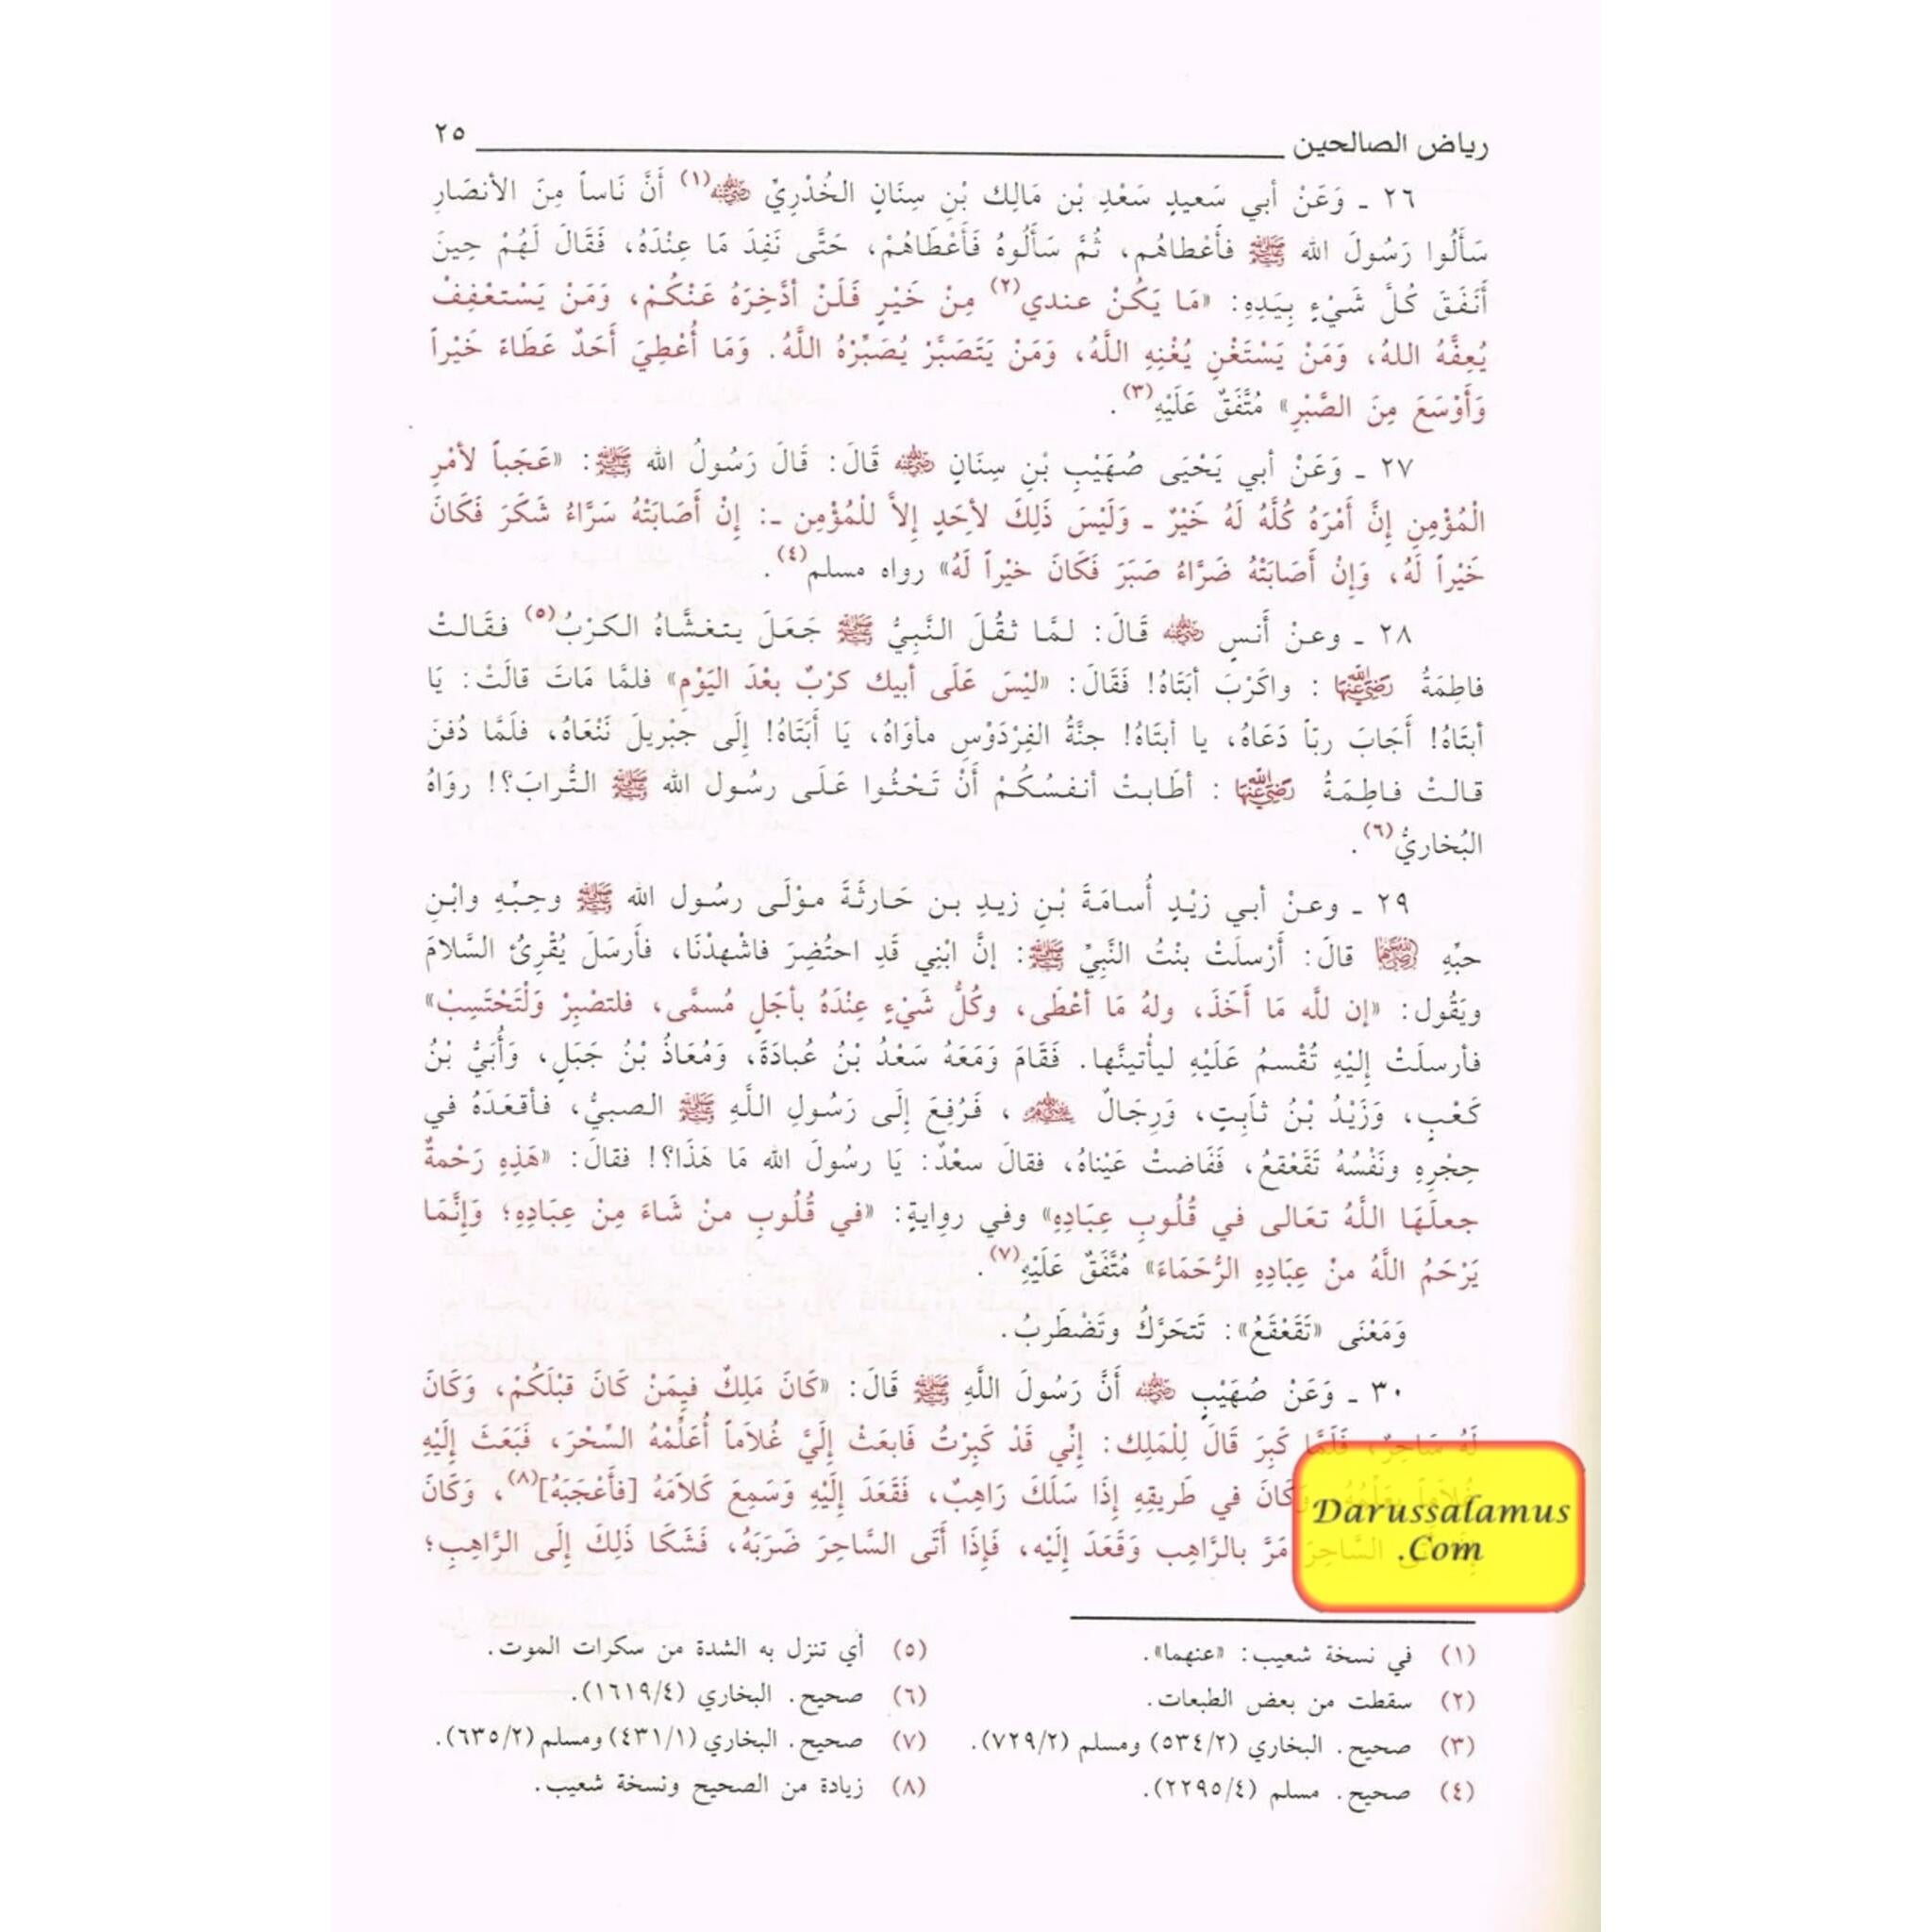 رياض الصالحين ٢٥
٢٦ ـ وَعَنْ أبي سَعيدٍ سَعْدِ بْن مَالِك بْنِ سِنَانٍ الخُدْرِيِّ رضي الله عنه (١) أَنَّ نَاساً مِنَ الأنصَارِ
سَأَلُوا رَسُولَ الله ﷺ فأَعْطاهُم، ثُمَّ سَأَلُوهُ فَأَعْطَاهُمْ، حَتَّى نَفِدَ مَا عِنْدَهُ، فَقَالَ لَهُمْ حِينَ
أَنَفَقَ كُلَّ شَيْءٍ بِيَدِهِ: «مَا يَكُنْ عندي(٢) مِنْ خَيْرٍ فَلَنْ أدَّخِرَهُ عَنْكُمْ، وَمَنْ يَسْتعْفِفْ
يُعِفَّهُ اللهُ، وَمَنْ يَسْتَغْنِ يُغْنِهِ اللَّهُ، وَمَنْ يَتَصَبَّرْ يُصَبِّرْهُ اللَّهُ. وَمَا أُعْطِيَ أَحَدٌ عَطَاءً خَيْراً
وَأَوْسَعَ مِنَ الصَّبْرِ» مُتَّفَقٌ عَلَيْهِ(٣).
٢٧ ـ وَعَنْ أبي يَحْيَى صُهَيْبِ بْنِ سِنَانٍ رضي الله عنه قَالَ: قَالَ رَسُولُ الله ﷺ: «عَجَباً لأمْرِ
الْمُؤْمِنِ إنَّ أَمْرَهُ كُلَّهُ لَهُ خَيْرٌ ـ وَلَيْسَ ذَلِكَ لأحَدٍ إلاَّ للْمُؤْمِن ـ: إنْ أَصَابَتْهُ سَرَّاءُ شَكَرَ فَكَانَ
خَيْراً لَهُ، وَإنْ أَصَابَتْهُ ضَرَّاءُ صَبَرَ فَكَانَ خيْراً لَهُ» رواه مسلم(٤).
٢٨ ـ وعنْ أَنسٍ رضي الله عنه قَالَ: لمَّا ثقُلَ النَّبِيُّ ﷺ جَعَلَ يتغشَّاهُ الكرْبُ(٥) فقَالتْ
فاطِمَةُ رضي الله عنها : واكَرْبَ أبَتَاهُ! فَقَالَ: «ليْسَ عَلَى أبيك كرْبٌ بعْدَ اليَوْم» فلمَّا مَاتَ قالَتْ: يَا
أبتَاهُ! أَجَابَ ربّاً دَعَاهُ، يا أبتَاهُ! جنَّةُ الفِرْدَوْسِ مأوَاهُ، يَا أَبَتَاهُ! إلَى جَبريلَ نَنْعَاهُ، فلَمَّا دُفنَ
قالتْ فاطِمَةُ رضي الله عنها : أطَابتْ أنفسُكُمْ أَنْ تَحْثُوا عَلَى رسُول الله ﷺ التُّرابَ؟! روَاهُ
البُخاريُّ(٦).
٢٩ ـ وعنْ أبي زيْدٍ أُسامَةَ بْنِ زيدِ بن حَارثَةَ موْلَى رسُول الله ﷺ وحِبِّهِ وابْنِ
حبِّهِ رضي الله عنهما قالَ: أَرْسلَتْ بنْتُ النَّبِيِّ ﷺ: إنَّ ابْنِي قَدِ احتُضِرَ فاشْهدْنَا، فأَرسَلَ يُقْرِئُ السَّلامَ
ويَقُول: «إن للَّه مَا أَخَذَ، ولهُ مَا أعْطَى، وكُلُّ شَيْءٍ عِنْدَهُ بأجَلٍ مُسمَّى، فلتصْبِرْ وَلْتَحْتَسِبْ»
فأرسلَتْ إِليْهِ تُقْسمُ عَلَيْهِ ليأْتينَّها. فَقَامَ وَمَعَهُ سَعْدُ بْنُ عُبادَةَ، وَمُعَاذُ بْنُ جَبَلٍ، وَأُبَيُّ بْنُ
كَعْبٍ، وَزَيْدُ بْنُ ثاَبِتٍ، وَرِجَالٌ رضي الله عنهم ، فَرُفِعَ إِلَى رَسُولِ اللَّهِ ﷺ الصبيُّ، فأقعَدَهُ في
حِجْرِهِ ونَفْسُهُ تَقَعْقعُ، فَفَاضتْ عَيْناهُ، فقالَ سعْدٌ: يَا رسُولَ الله مَا هَذَا؟! فقالَ: «هَذِهِ رَحْمةٌ
جعلَهَا اللَّهُ تعَالى في قُلُوبِ عِبَادِهِ» وفي روايةٍ: «في قُلُوبِ منْ شَاءَ مِنْ عِبَادِهِ؛ وَإِنَّمَا
يَرْحَمُ اللَّهُ منْ عِبَادِهِ الرُّحَمَاءَ» مُتَّفَقٌ عَلَيْهِ(٧).
وَمَعْنَى «تَقَعْقَعُ»: تَتحَرَّكُ وتَضْطَربُ.
٣٠ ـ وَعَنْ صُهَيْبٍ رضي الله عنه أَنَّ رَسُولَ اللَّهِ ﷺ قَالَ: «كَانَ مَلِكٌ فيِمَنْ كَانَ قبْلَكُمْ، وَكَانَ
لَهُ سَاحِرٌ، فَلَمَّا كَبِرَ قَالَ لِلْمَلِك: إِنِّي قَدْ كَبِرْتُ فَابعَثْ إِلَيَّ غُلاَماً أُعَلِّمْهُ السِّحْرَ، فَبَعَثَ إِلَيْهِ
غُلاَماً يعَلِّمُهُ، وَكَانَ في طَريقِهِ إِذَا سَلَكَ رَاهِبٌ، فَقَعَدَ إِلَيْهِ وَسَمِعَ كَلاَمَهُ [فأَعْجَبَهُ](٨)، وَكَانَ
إِذَا أَتَى السَّاحِرَ مَرَّ بالرَّاهِب وَقَعَدَ إِلَيْه، فَإِذَا أَتَى السَّاحِرَ ضَرَبَهُ، فَشَكَا ذَلِكَ إِلَى الرَّاهِبِ؛
Darussalamus
.Com
(١) في نسخة شعيب: «عنهما».
(٢) سقطت من بعض الطبعات.
(٣) صحيح. البخاري (٥٣٤/٢) ومسلم (٧٢٩/٢).
(٤) صحيح. مسلم (٢٢٩٥/٤).
(٥) أي تنزل به الشدة من سكرات الموت.
(٦) صحيح. البخاري (١٦١٩/٤).
(٧) صحيح. البخاري (٤٣١/١) ومسلم (٦٣٥/٢).
(٨) زيادة من الصحيح ونسخة شعيب.